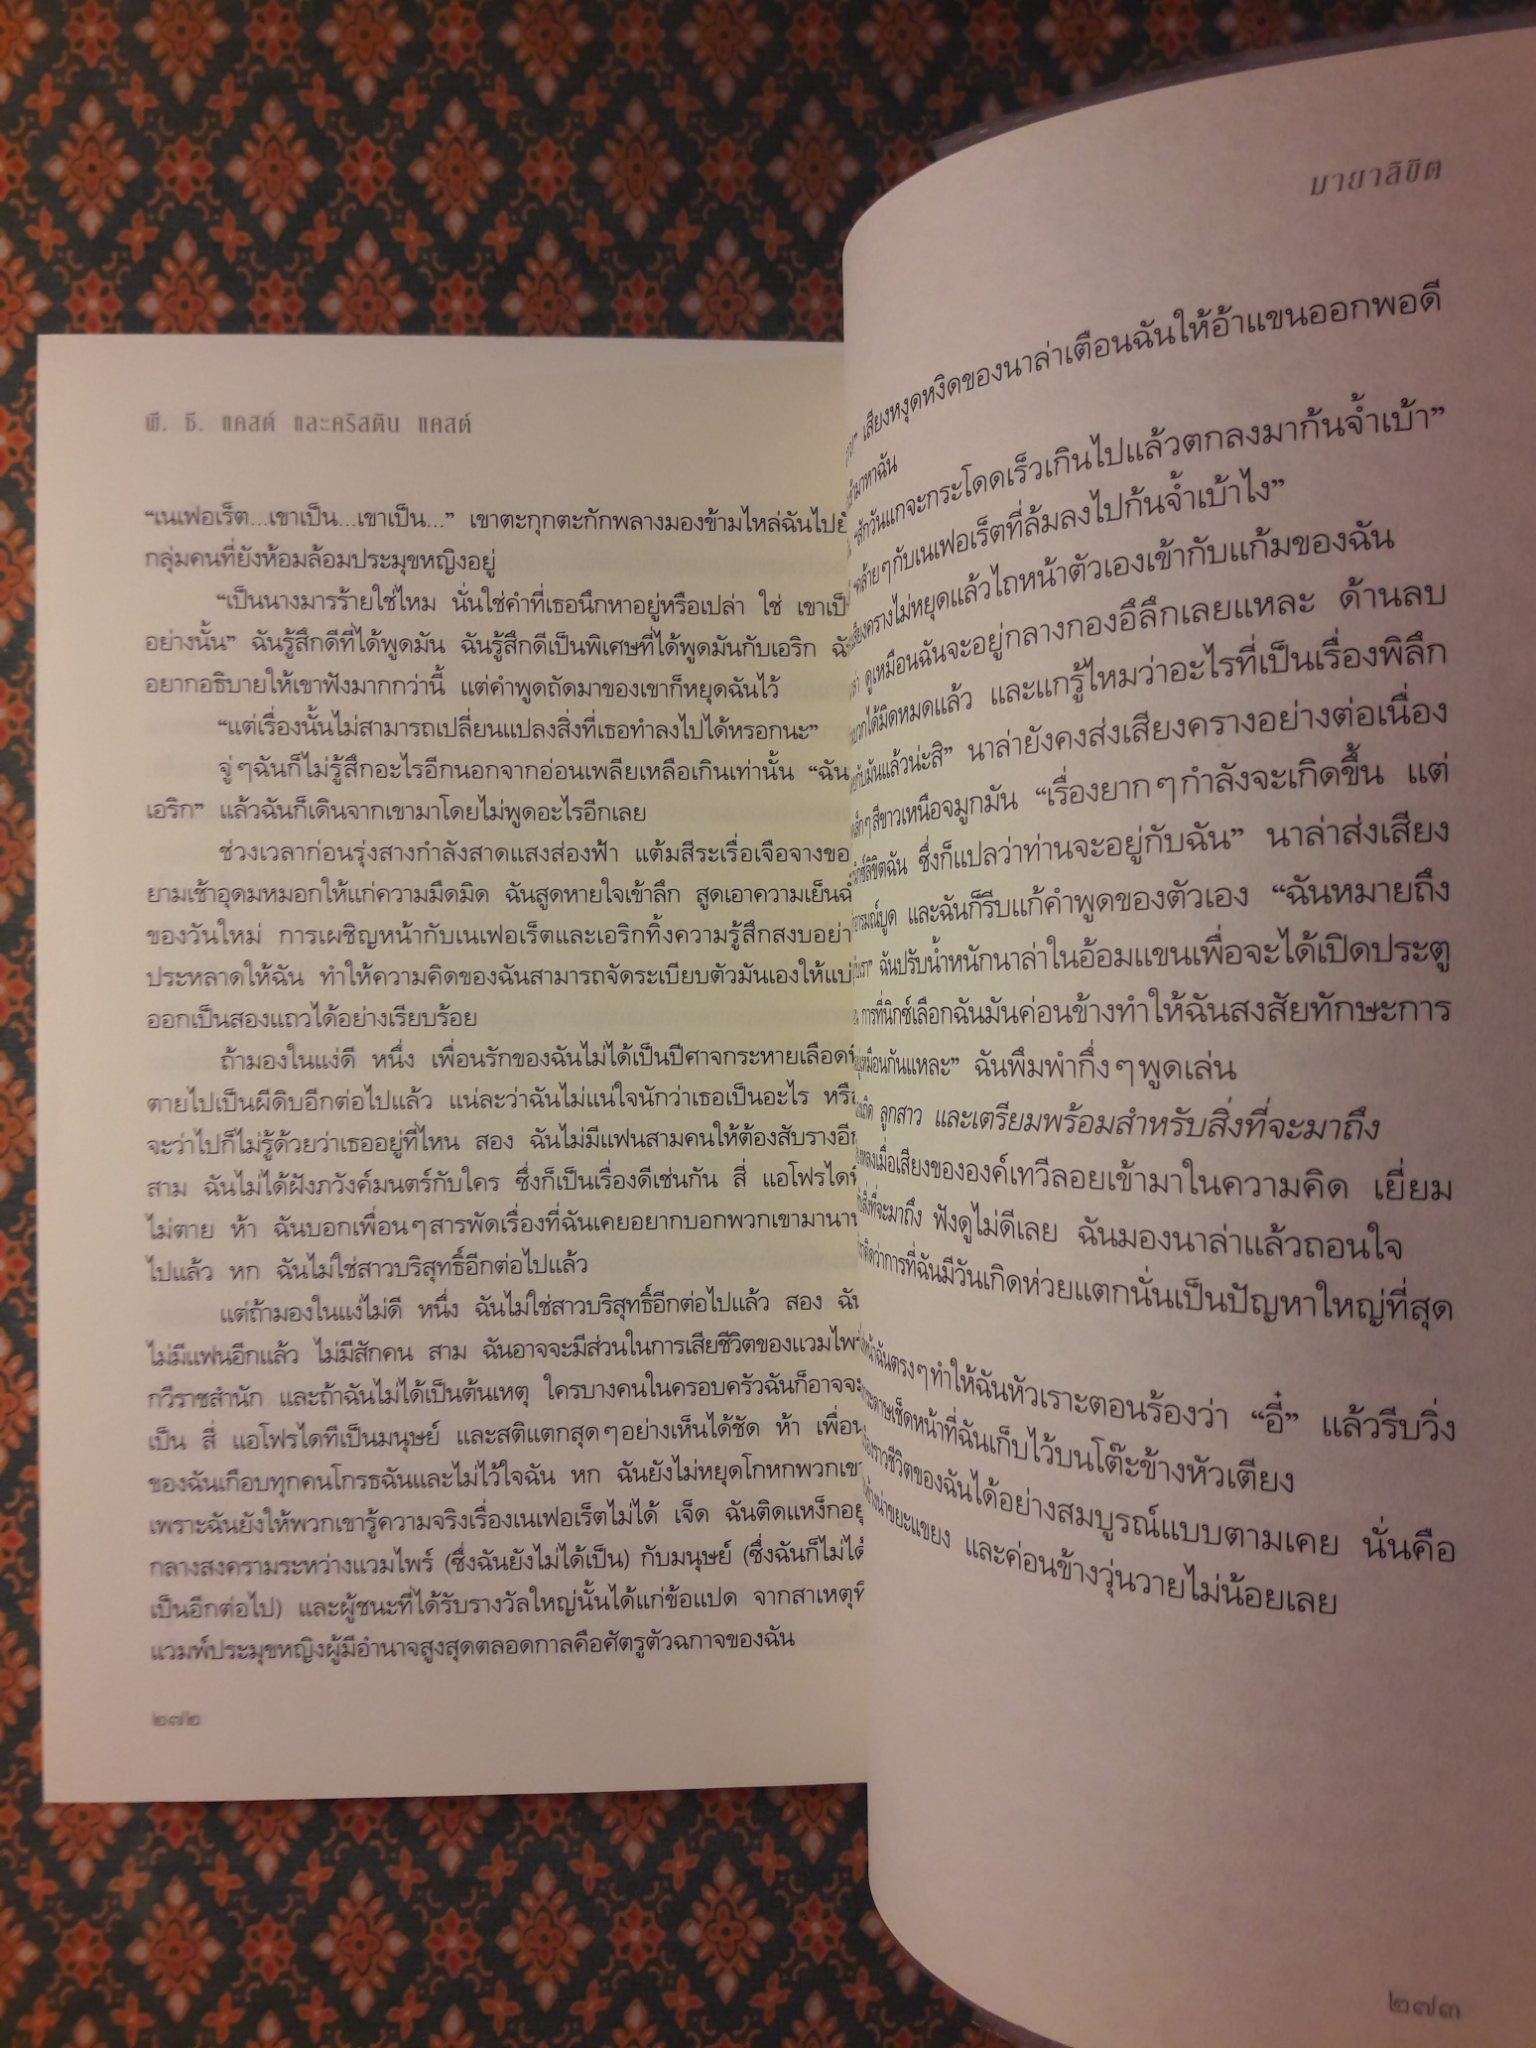 พี. ซี. แคสต์ และคริสติน แคสต์
“เนเฟอเร็ต...เขาเป็น...เขาเป็น...” เขาตะกุกตะกักพลางมองข้ามไหล่ฉันไปยัง
กลุ่มคนที่ยังห้อมล้อมประมุขหญิงอยู่
“เป็นนางมารร้ายใช่ไหม นั่นใช่คำที่เธอนึกหาอยู่หรือเปล่า ใช่ เขาเป็น
อย่างนั้น” ฉันรู้สึกดีที่ได้พูดมัน ฉันรู้สึกดีเป็นพิเศษที่ได้พูดมันกับเอริก
อยากอธิบายให้เขาฟังมากกว่านี้ แต่คำพูดถัดมาของเขาก็หยุดฉันไว้
“แต่เรื่องนั้นไม่สามารถเปลี่ยนแปลงสิ่งที่เธอทำลงไปได้หรอกนะ”
จู่ๆฉันก็ไม่รู้สึกอะไรอีกนอกจากอ่อนเพลียเหลือเกินเท่านั้น “ฉัน
เอริก” แล้วฉันก็เดินจากเขามาโดยไม่พูดอะไรอีกเลย
ช่วงเวลาก่อนรุ่งสางกำลังสาดแสงส่องฟ้า แต้มสีระเรื่อเจือจางขอ
ยามเช้าอุดมหมอกให้แก่ความมืดมิด ฉันสูดหายใจเข้าลึก สูดเอาความเย็นฉ่ำ
ของวันใหม่ การเผชิญหน้ากับเนเฟอเร็ตและเอริกทิ้งความรู้สึกสงบอย่า
ประหลาดให้ฉัน ทำให้ความคิดของฉันสามารถจัดระเบียบตัวมันเองให้แบ่
ออกเป็นสองแถวได้อย่างเรียบร้อย
ถ้ามองในแง่ดี หนึ่ง เพื่อนรักของฉันไม่ได้เป็นปีศาจกระหายเลือด
ตายไปเป็นผีดิบอีกต่อไปแล้ว แน่ละว่าฉันไม่แน่ใจนักว่าเธอเป็นอะไร หรือ
จะว่าไปก็ไม่รู้ด้วยว่าเธออยู่ที่ไหน สอง ฉันไม่มีแฟนสามคนให้ต้องสับรางอีก
สาม ฉันไม่ได้ฝังภวังค์มนตร์กับใคร ซึ่งก็เป็นเรื่องดีเช่นกัน สี่ แอโฟรไดที
ไม่ตาย ห้า ฉันบอกเพื่อนๆสารพัดเรื่องที่ฉันเคยอยากบอกพวกเขามานาน
ไปแล้ว หก ฉันไม่ใช่สาวบริสุทธิ์อีกต่อไปแล้ว
แต่ถ้ามองในแง่ไม่ดี หนึ่ง ฉันไม่ใช่สาวบริสุทธิ์อีกต่อไปแล้ว สอง ฉัน
ไม่มีแฟนอีกแล้ว ไม่มีสักคน สาม ฉันอาจจะมีส่วนในการเสียชีวิตของแวมไพร์
กวีราชสำนัก และถ้าฉันไม่ได้เป็นต้นเหตุ ใครบางคนในครอบครัวฉันก็อาจจะ
เป็น สี่ แอโฟรไดทีเป็นมนุษย์ และสติแตกสุดๆอย่างเห็นได้ชัด ห้า เพื่อน
ของฉันเกือบทุกคนโกรธฉันและไม่ไว้ใจฉัน หก ฉันยังไม่หยุดโกหกพวกเขา
เพราะฉันยังให้พวกเขารู้ความจริงเรื่องเนเฟอเร็ตไม่ได้ เจ็ด ฉันติดแหง็กอยู่
กลางสงครามระหว่างแวมไพร์ (ซึ่งฉันยังไม่ได้เป็น) กับมนุษย์ (ซึ่งฉันก็ไม่ได้
เป็นอีกต่อไป) และผู้ชนะที่ได้รับรางวัลใหญ่นั้นได้แก่ข้อแปด จากสาเหตุที่
แวมพ์ประมุขหญิงผู้มีอำนาจสูงสุดตลอดกาลคือศัตรูตัวฉกาจของฉัน
๒๗๒
มายาลิขิต
เสียงหงุดหงิดของนาล่าเตือนฉันให้อ้าแขนออกพอดี
มาหาฉัน
“สักวันแกจะกระโดดเร็วเกินไปแล้วตกลงมาก้นจ้ำเบ้า”
คล้ายๆกับเนเฟอเร็ตที่ล้มลงไปก้นจ้ำเบ้าไง”
เสียงครางไม่หยุดแล้วไถหน้าตัวเองเข้ากับแก้มของฉัน
ดูเหมือนฉันจะอยู่กลางกองอึลึกเลยแหละ ด้านลบ
บวกได้มิดหมดแล้ว และแกรู้ไหมว่าอะไรที่เป็นเรื่องพิลึก
กับมันแล้วน่ะสิ” นาล่ายังคงส่งเสียงครางอย่างต่อเนื่อง
เล็กๆสีขาวเหนือจมูกมัน “เรื่องยากๆกำลังจะเกิดขึ้น แต่
ลิขิตฉัน ซึ่งก็แปลว่าท่านจะอยู่กับฉัน” นาล่าส่งเสียง
อารมณ์บูด และฉันก็รีบแก้คำพูดของตัวเอง “ฉันหมายถึง
ฉันปรับน้ำหนักนาล่าในอ้อมแขนเพื่อจะได้เปิดประตู
การที่นิกซ์เลือกฉันมันค่อนข้างทำให้ฉันสงสัยทักษะการ
เหมือนกันแหละ” ฉันพึมพำกึ่งๆพูดเล่น
ลูกสาว และเตรียมพร้อมสำหรับสิ่งที่จะมาถึง
เมื่อเสียงขององค์เทวีลอยเข้ามาในความคิด เยี่ยม
สิ่งที่จะมาถึง ฟังดูไม่ดีเลย ฉันมองนาล่าแล้วถอนใจ
คิดว่าการที่ฉันมีวันเกิดห่วยแตกนั่นเป็นปัญหาใหญ่ที่สุด
หน้าฉันตรงๆทำให้ฉันหัวเราะตอนร้องว่า “อี๋” แล้วรีบวิ่ง
กระดาษเช็ดหน้าที่ฉันเก็บไว้บนโต๊ะข้างหัวเตียง
ชีวิตของฉันได้อย่างสมบูรณ์แบบตามเคย นั่นคือ
น่าขยะแขยง และค่อนข้างวุ่นวายไม่น้อยเลย
๒๗๓